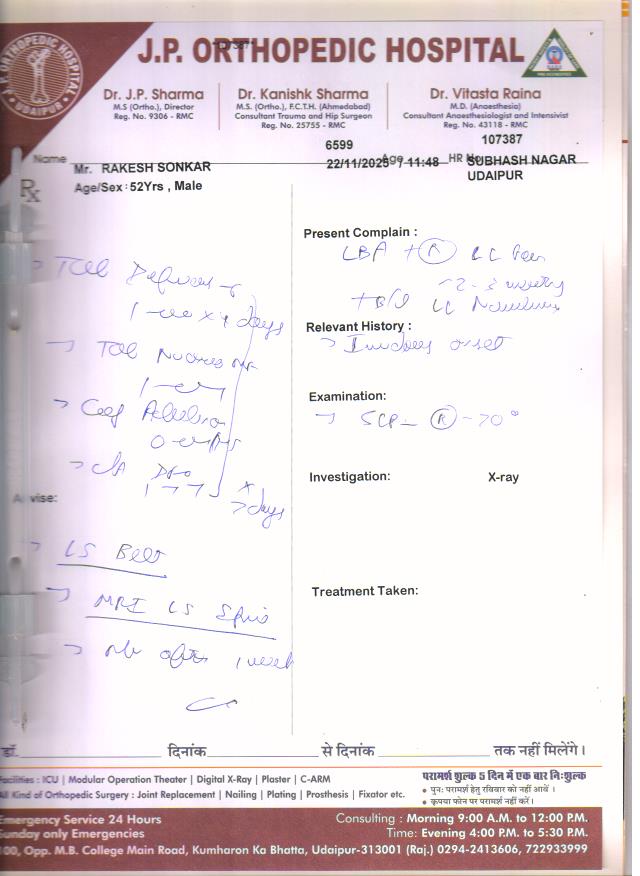 J.P. ORTHOPEDIC HOSPITAL
UDAIPUR
J.P. ORTHOPEDIC HOSPITAL
107387
Dr. J.P. Sharma
M.S (Ortho.), Director
Reg. No. 9306 - RMC
Dr. Kanishk Sharma
M.S. (Ortho.), F.C.T.H. (Ahmedabad)
Consultant Trauma and Hip Surgeon
Reg. No. 25755 - RMC
Dr. Vitasta Raina
M.D. (Anaesthesia)
Consultant Anaesthesiologist and Intensivist
Reg. No. 43118 - RMC
6599 107387
Name Mr. RAKESH SONKAR 22/11/2025 / 11:48 Age HR No SUBHASH NAGAR
Rx Age/Sex : 52Yrs , Male UDAIPUR
Present Complain :
LBA + (R) LL Pain
~2-3 weeks
LL
Relevant History :
→ onset
Examination:
→ (R) - 70°
Investigation: X-ray
Treatment Taken:
→ Tab
1 x 4 days
→ Tab
1
→ Cap
→
x 7 days
Advise:
→ LS Belt
→ MRI LS Spine
→ after 1 week
डॉ. दिनांक से दिनांक तक नहीं मिलेंगे।
Facilities : ICU | Modular Operation Theater | Digital X-Ray | Plaster | C-ARM
All Kind of Orthopedic Surgery : Joint Replacement | Nailing | Plating | Prosthesis | Fixator etc.
परामर्श शुल्क 5 दिन में एक बार निःशुल्क
• पुनः परामर्श हेतु रविवार को नहीं आवें ।
• कृपया फोन पर परामर्श नहीं करें।
Emergency Service 24 Hours
Sunday only Emergencies
Consulting : Morning 9:00 A.M. to 12:00 P.M.
Time: Evening 4:00 P.M. to 5:30 P.M.
100, Opp. M.B. College Main Road, Kumharon Ka Bhatta, Udaipur-313001 (Raj.) 0294-2413606, 722933999